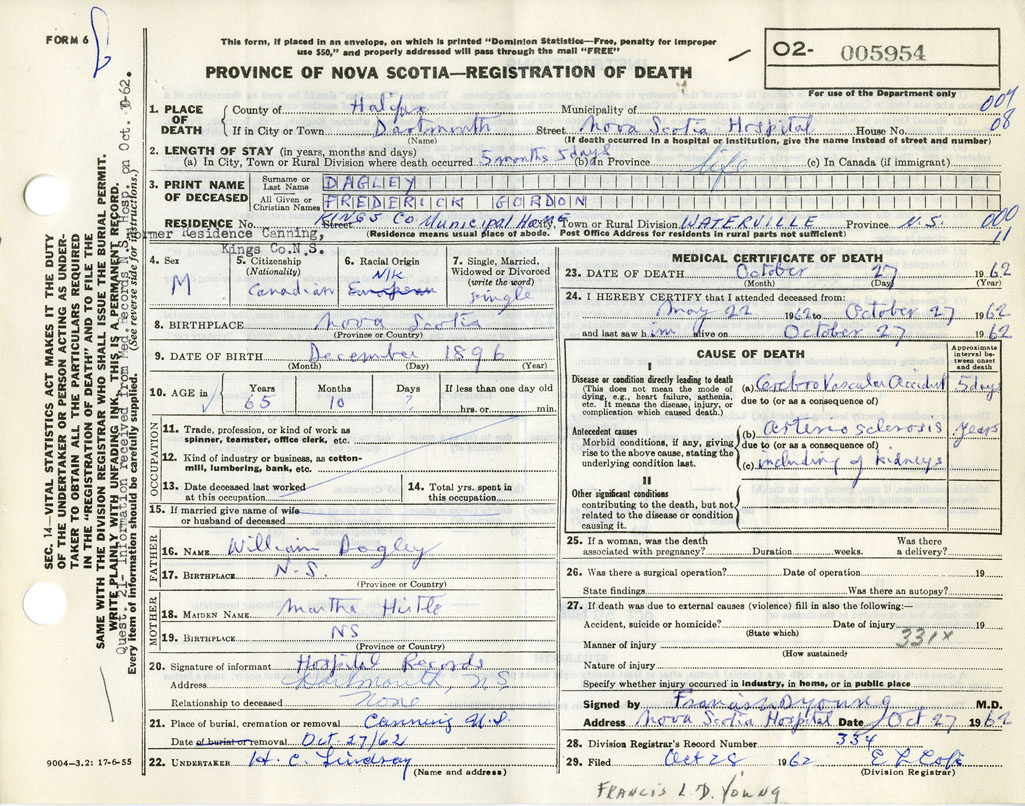 FORM 6
This form, if placed in an envelope, on which is printed "Dominion Statistics—Free, penalty for improper
use $50," and properly addressed will pass through the mail "FREE"
PROVINCE OF NOVA SCOTIA—REGISTRATION OF DEATH
02- 005954
For use of the Department only
007
08
1. PLACE OF DEATH
County of Halifax Municipality of
If in City or Town Dartmouth Street Nova Scotia Hospital House No.
(Name) (If death occurred in a hospital or institution, give the name instead of street and number)
2. LENGTH OF STAY (in years, months and days)
(a) In City, Town or Rural Division where death occurred 5 months 5 days (b) in Province life (c) In Canada (if immigrant)
3. PRINT NAME OF DECEASED
Surname or Last Name DAGLEY
All Given or Christian Names FREDERICK GORDON
RESIDENCE No. Street KINGS CO. Municipal Home City, Town or Rural Division WATERVILLE Province N.S. 000
11
(Residence means usual place of abode. Post Office Address for residents in rural parts not sufficient)
Former Residence Canning,
Kings Co.N.S.
4. Sex
M
5. Citizenship
(Nationality)
Canadian
6. Racial Origin
N/K
European
7. Single, Married,
Widowed or Divorced
(write the word)
Single
8. BIRTHPLACE Nova Scotia
(Province or Country)
9. DATE OF BIRTH December 1896
(Month) (Day) (Year)
10. AGE in Years 65 Months 10 Days ? If less than one day old
hrs. or min.
OCCUPATION
11. Trade, profession, or kind of work as
spinner, teamster, office clerk, etc.
12. Kind of industry or business, as cotton-
mill, lumbering, bank, etc.
13. Date deceased last worked
at this occupation
14. Total yrs. spent in
this occupation
15. If married give name of wife
or husband of deceased
FATHER
16. NAME William Dagley
17. BIRTHPLACE N.S.
(Province or Country)
MOTHER
18. MAIDEN NAME Martha Hirtle
19. BIRTHPLACE NS
(Province or Country)
20. Signature of informant Hospital Records
Address Dartmouth, N S
Relationship to deceased None
21. Place of burial, cremation or removal Canning N.S.
Date of burial or removal Oct. 27/62
22. UNDERTAKER H. C. Lindsay
(Name and address)
9004—3.2: 17-6-55
MEDICAL CERTIFICATE OF DEATH
23. DATE OF DEATH October 27 1962
(Month) (Day) (Year)
24. I HEREBY CERTIFY that I attended deceased from:
May 22 1962 to October 27 1962
and last saw him alive on October 27 1962
CAUSE OF DEATH
Approximate interval between onset and death
I
Disease or condition directly leading to death
(This does not mean the mode of
dying, e.g., heart failure, asthenia,
etc. It means the disease, injury, or
complication which caused death.)
(a) Cerebro Vascular Accident 5 days
due to (or as a consequence of)
Antecedent causes
Morbid conditions, if any, giving
rise to the above cause, stating the
underlying condition last.
(b) Arteriosclerosis years
due to (or as a consequence of)
(c) including of kidneys
II
Other significant conditions
contributing to the death, but not
related to the disease or condition
causing it.
25. If a woman, was the death
associated with pregnancy? Duration weeks. Was there
a delivery?
26. Was there a surgical operation? Date of operation 19
State findings Was there an autopsy?
27. If death was due to external causes (violence) fill in also the following:—
Accident, suicide or homicide? Date of injury 19
(State which)
331x
Manner of injury
(How sustained)
Nature of injury
Specify whether injury occurred in industry, in home, or in public place
Signed by Francis L D Young M.D.
Address Nova Scotia Hospital Date Oct 27 1962
28. Division Registrar's Record Number 334
29. Filed Oct 28 1962
(Division Registrar)
FRANCIS L. D. YOUNG
SEC. 14—VITAL STATISTICS ACT MAKES IT THE DUTY
OF THE UNDERTAKER OR PERSON ACTING AS UNDER-
TAKER TO OBTAIN ALL THE PARTICULARS REQUIRED
IN THE "REGISTRATION OF DEATH" AND TO FILE THE
SAME WITH THE DIVISION REGISTRAR WHO SHALL ISSUE THE BURIAL PERMIT.
WRITE PLAINLY WITH UNFADING INK. THIS IS A PERMANENT RECORD.
Quest 21- Information received from Med. records N.S. Hosp. on Oct. -62.
Every item of information should be carefully supplied. (See reverse side for instructions.)